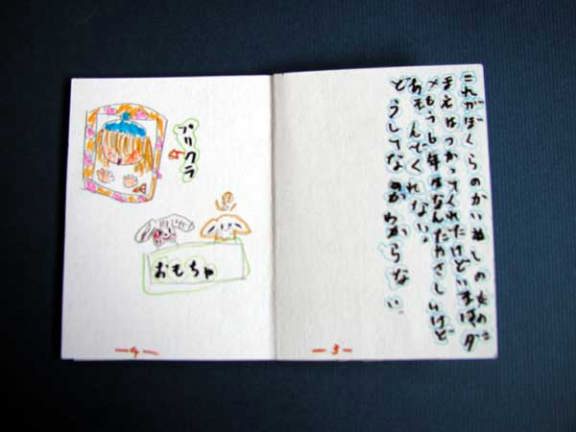 これがぼくらのかいぬしの女の
まえはつかってくれたけどいまはダ
メもう6年生なんだやさしいけど
あそんでくれない。
どうしてなのかわからない
3
プリクラ
おもちゃ
4